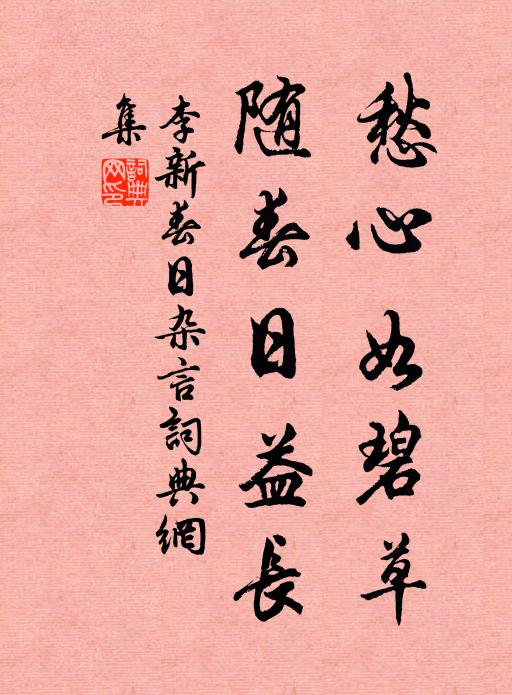 愁心如碧草
随春日益長
李新春日杂言詞典網
集
詞典網印